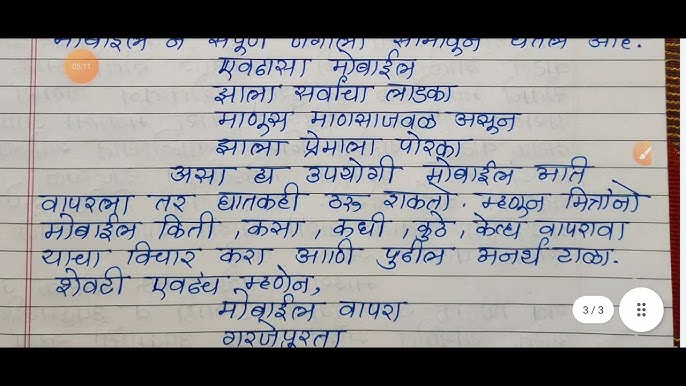 मोबाईल ने संपूर्ण जगाला सामावून घेतले आहे.
05:11
एवढासा मोबाईल
झाला सर्वांचा लाडका
माणूस माणसाजवळ असून
झाला प्रेमाला पोरका
असा हा उपयोगी मोबाईल अति
वापरला तर घातकही ठरू शकतो. म्हणून मित्रांनो
मोबाईल किती, कसा, कधी, कुठे, केव्हा वापरावा
याचा विचार करा आणि पुढील अनर्थ टाळा.
शेवटी एवढंच म्हणेन,
3/3
मोबाईल वापरा
गरजेपुरता